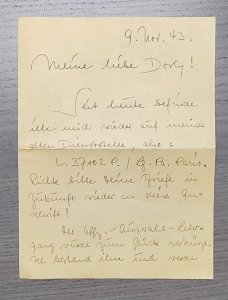 9. Nov. 43.
Meine liebe Dorly!
Seit heute befinde
ich mich wieder auf meiner
alten Dienststelle, also:
L. 37102 P. / Lg. Pa. Paris.
Richte bitte Deine Briefe in
Zukunft wieder an diese An-
schrift!
Der Offz.-Auswahl-Lehr-
gang wurde zum Glück verkürzt.
Ich bestand ihn und werde